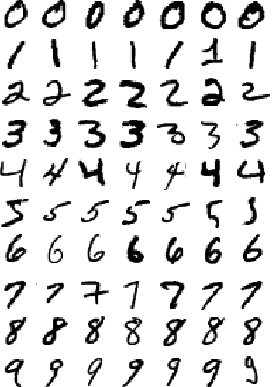 0 0 0 0 0 0 0
1 1 1 1 1 1 1
2 2 2 2 2 2 2
3 3 3 3 3 3 3
4 4 4 4 4 4 4
5 5 5 5 5 5 5
6 6 6 6 6 6 6
7 7 7 7 7 7 7
8 8 8 8 8 8 8
9 9 9 9 9 9 9